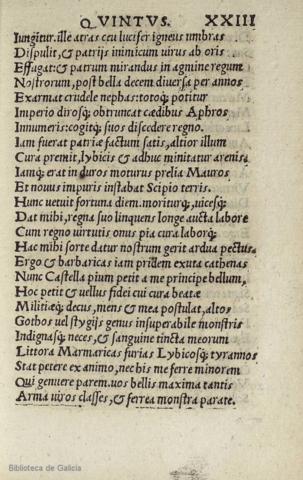 QVINTVS. XXIII
Iungitur. ille atras ceu lucifer igneus umbras
Dispulit, & patrijs inimicum uirus ab oris
Effugat: & patrum mirandus in agmine regum
Nostrorum, post bella decem diuersa per annos
Exarmat crudele nephas: totoq; potitur
Imperio dirosq; obtruncat cædibus Aphros
Innumeris: cogitq; suos discedere regno.
Iam fuerat patriæ factum satis, altior illum
Cura premit, lybicis & adhuc minitatur arenis.
Iamq; erat in duros moturus prelia Mauros
Et nouus impuris instabat Scipio terris.
Hunc uetuit fortuna diem. moriturq; , uicesq;
Dat mihi, regna suo linquens longe aucta labore
Cum regno uirtutis onus pia cura laborq;
Hac mihi sorte datur nostrum gerit ardua pectus.
Ergo & barbaricas iam pridem exuta cathenas
Nunc Castella pium petit a me principe bellum,
Hoc petit & uellus fidei cui cura beatæ
Militiæq; decus, mens & mea postulat, altos
Gothos uel stygijs genus insuperabile monstris
Indignasq; neces, & sanguine tincta meorum
Littora Marmaricas furias Lybicosq; tyrannos
Stat petere ex animo, nec his me ferre minorem
Qui genuere parem. uos bellis maxima tantis
Arma uiros classes, & ferrea monstra parate.
Biblioteca de Galicia